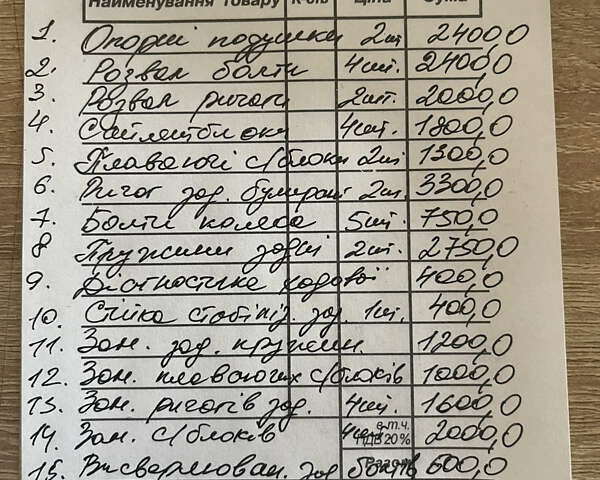 Найменування товару К-сть Ціна Сума
1. Опорні подушки 2шт 2400,0
2. Розвал болти 4шт. 2400,0
3. Розвал ричаги 2шт. 2000,0
4. Сайлентблоки 4шт. 1800,0
5. Плаваючі с/блоки 2шт 1300,0
6. Ричаг зад. бумеранг 2шт. 3300,0
7. Болти колеса 5шт. 750,0
8 Пружини задні 2шт. 2750,0
9. Діагностика ходової 400,0
10. Стійка стабіліз. зад. 1шт. 400,0
11. Зам. зад. пружин. 1200,0
12. Зам. плаваючих с/блоків 1000,0
13. Зам. ричагів зад. 4шт. 1600,0
14. Зам. с/блоків 4шт 2000,0
в т.ч. ПДВ 20%
15. Висверлюван. зад болтів 600,0
Разом